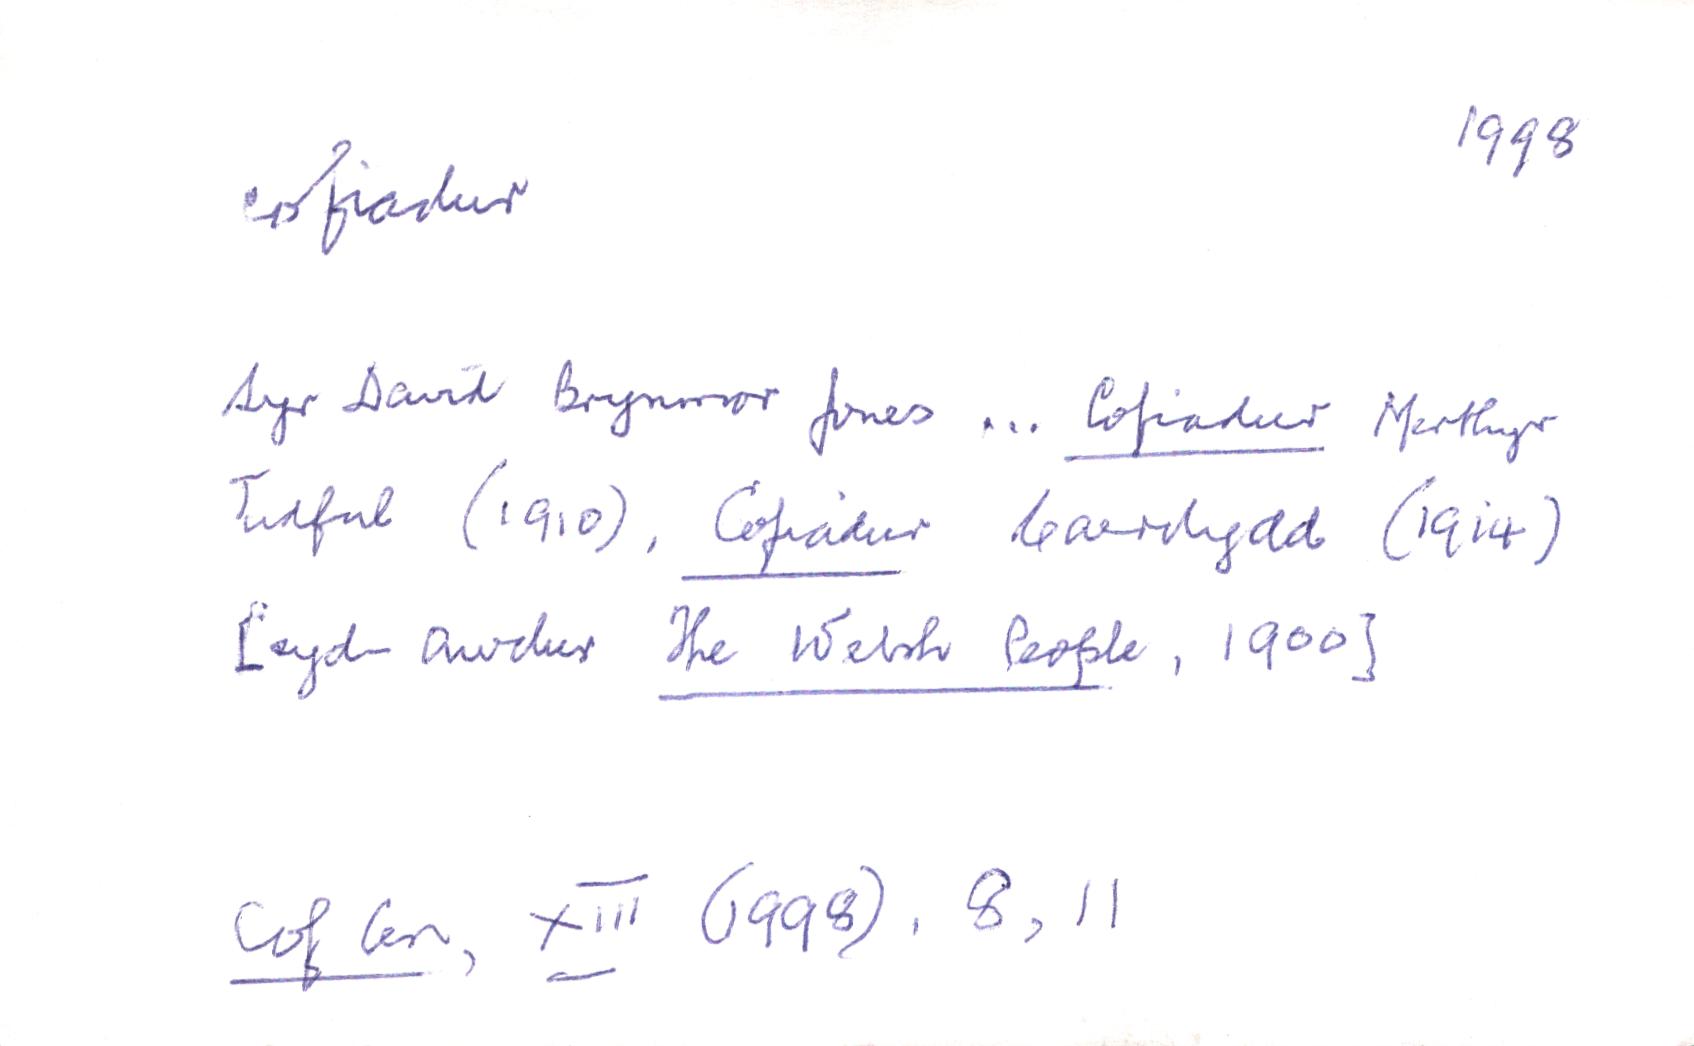 1998
cofiadur
Syr David Brynmor Jones ... Cofiadur Merthyr
Tudful (1910), Cofiadur Caerdydd (1914)
[cyd-awdur The Welsh People, 1900]
Cof Cen, xiii (1998), 8, 11